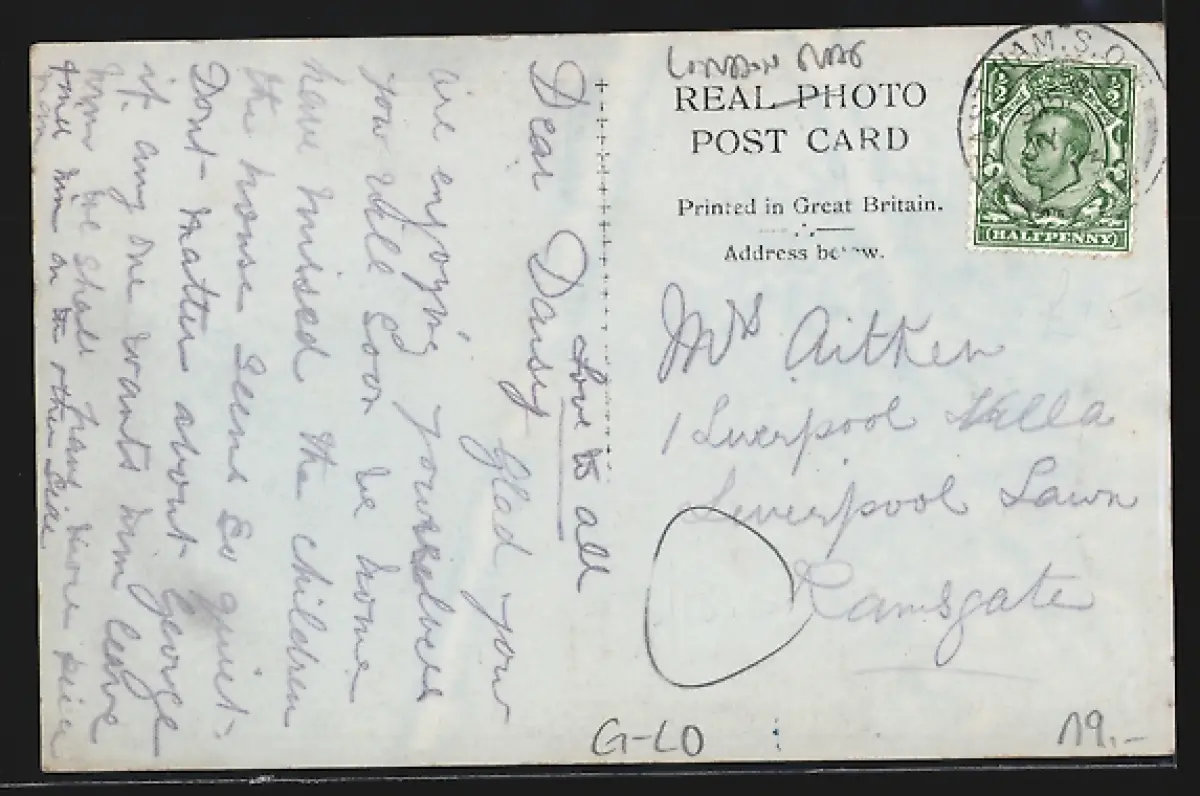 LONDON
REAL PHOTO
POST CARD
Printed in Great Britain.
Address below.
½ ½
HALFPENNY
HAM. S.O.
Mrs Aitken
1 Liverpool Villa
Liverpool Lawn
Ramsgate
Dear Daisy
Love to all
Glad you
are enjoying yourselves
you will soon be home
have missed the children
the house seems so quiet.
Dont matter about George
if any one wants him leave
him we shall have
find him on the other side
G-LO
19.-